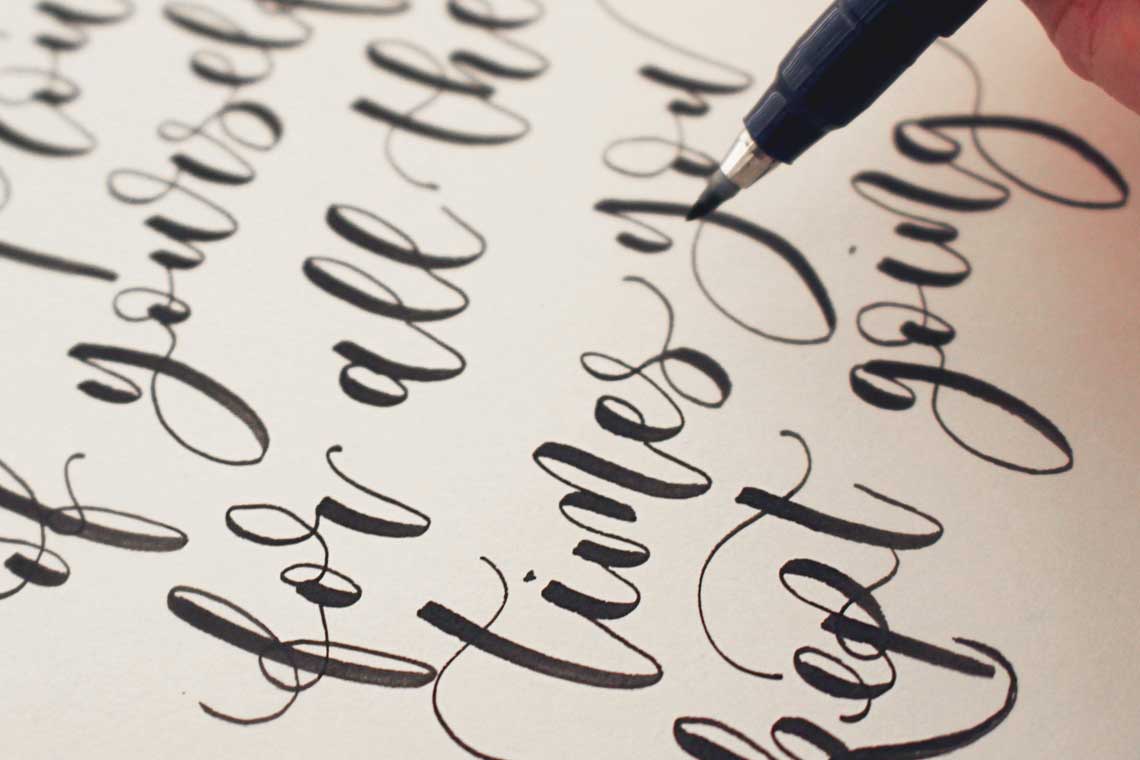 of yourself
for all the
times you
kept going